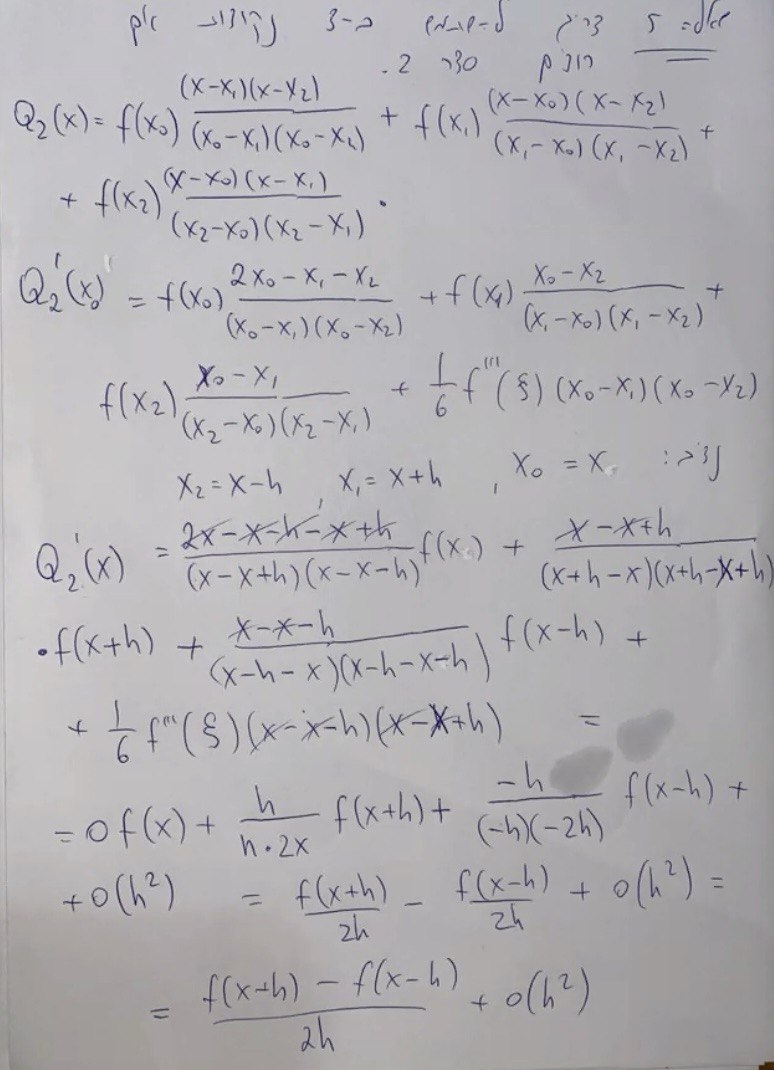 שאלה 5 צריך להשתמש ב-3 נקודות
סדר 2.
Q₂(x) = f(x₀) (x-x₁)(x-x₂)/(x₀-x₁)(x₀-x₂) + f(x₁) (x-x₀)(x-x₂)/(x₁-x₀)(x₁-x₂) +
+ f(x₂) (x-x₀)(x-x₁)/(x₂-x₀)(x₂-x₁) .
Q₂'(x₀) = f(x₀) 2x₀-x₁-x₂/(x₀-x₁)(x₀-x₂) + f(x₁) x₀-x₂/(x₁-x₀)(x₁-x₂) +
f(x₂) x₀-x₁/(x₂-x₀)(x₂-x₁) + 1/6 f'''(ξ)(x₀-x₁)(x₀-x₂)
x₂=x-h , x₁=x+h , x₀=x
Q₂'(x) = 2x-x-h-x+h/(x-x+h)(x-x-h) f(x) + x-x+h/(x+h-x)(x+h-x+h)
·f(x+h) + x-x-h/(x-h-x)(x-h-x-h) f(x-h) +
+ 1/6 f'''(ξ)(x-x-h)(x-x+h) =
= 0f(x) + h/h·2x f(x+h) + -h/(-h)(-2h) f(x-h) +
+ 0(h²) = f(x+h)/2h - f(x-h)/2h + 0(h²) =
= f(x+h) - f(x-h)/2h + 0(h²)